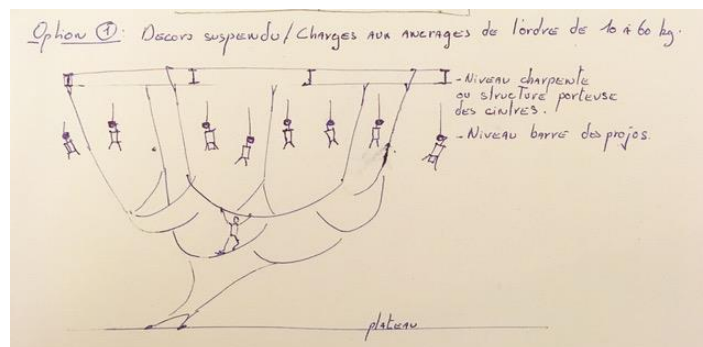 Option ①: Decors suspendu/Charges aux ancrages de l'ordre de 10 à 60 kg.
- Niveau charpente
ou structure porteuse
des cintres.
- Niveau barre des projos.
plateau